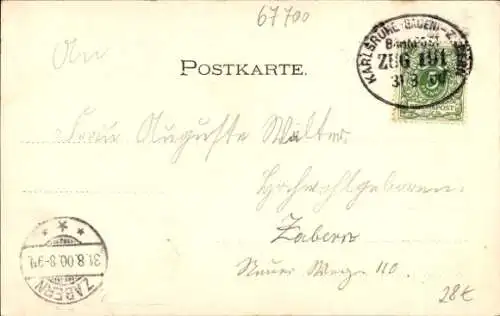 67700
An
POSTKARTE.
KARLSRUHE (BADEN)-Z
BAHNPOST
ZUG 191
31 8
5
POST
Frau Auguste Walter.
Hochwohlgeboren.
Zabern
Neuer Weg 110.
31.8.00.8-9V.
ZABERN
28€